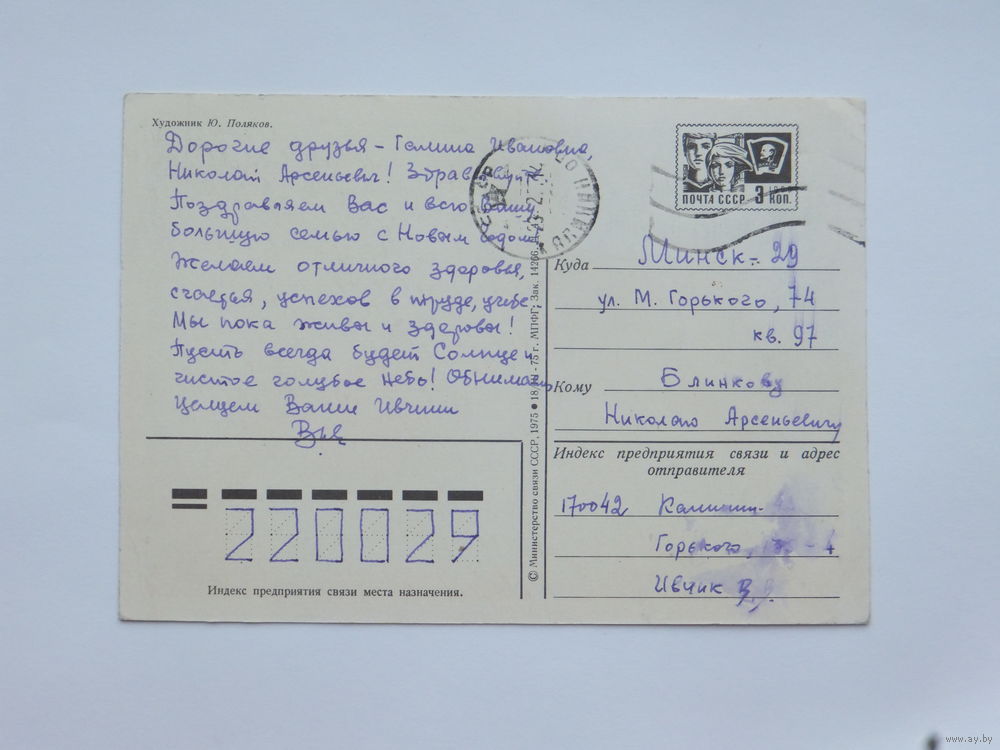 Художник Ю. Поляков.
Дорогие друзья - Галина Ивановна,
Николай Арсеньевич! Здравствуйте
Поздравляем Вас и всю Вашу
большую семью с Новым годом
Желаем отличного здоровья,
счастья, успехов в труде, учебе
Мы пока живы и здоровы!
Пусть всегда будет Солнце и
чистое голубое небо! Обнимаем
целуем Ваши Ивчики
ПОЧТА СССР 3 КОП.
Куда Минск - 29
ул. М. Горького, 74
кв. 97
Кому Блинкову
Николаю Арсеньевичу
Индекс предприятия связи и адрес
отправителя
170042 Калинин
Горького, - 4
Ивчик В.
© Министерство связи СССР, 1975 ● 18/ - 75 г. МПФГ; Зак. 14266.
220029
Индекс предприятия связи места назначения.
www.ay.by